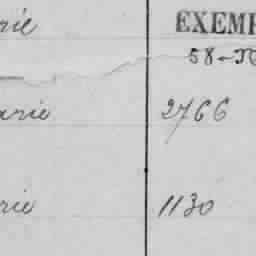 rie EXEMP
58-
arie 2766
rie 1130